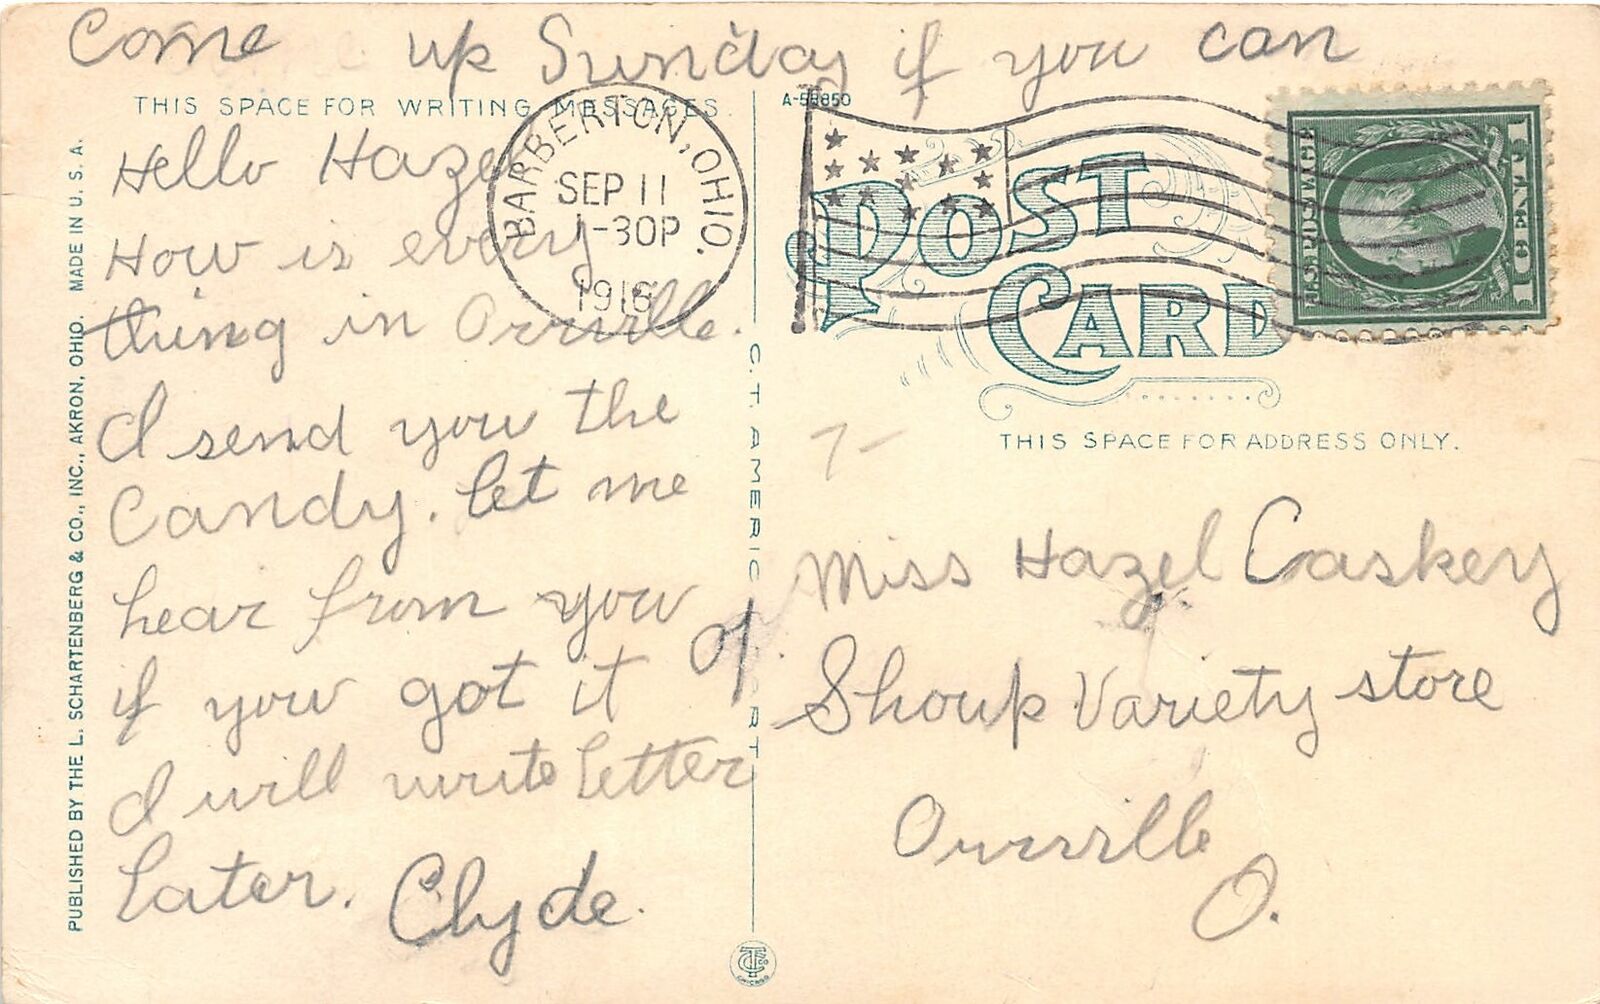 Come up Sunday if you can
THIS SPACE FOR WRITING MESSAGES.
Hello Hazel
How is every
thing in Orrville.
I send you the
Candy. let me
hear from you
if you got it
I will write letter
later. Clyde.
PUBLISHED BY THE L. SCHARTENBERG & CO., INC., AKRON, OHIO. MADE IN U. S. A.
BARBERTON, OHIO.
SEP 11
1-30P
1916
C. T. AMERICAN ART
CHICAGO
A-58850
POST
CARD
U.S. POSTAGE
1 CENT 1
THIS SPACE FOR ADDRESS ONLY.
7-
Miss Hazel Caskey
of Shoup Variety store
Orrville
O.